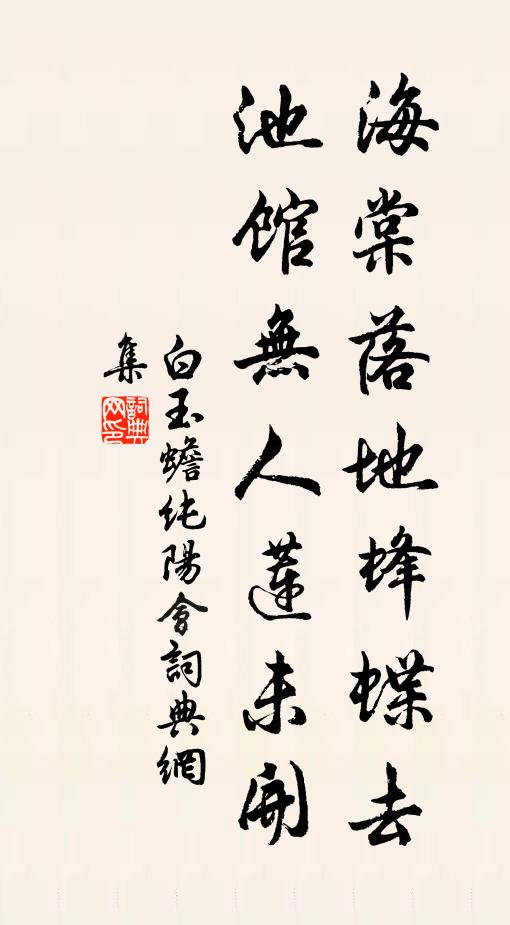 海棠落地蜂蝶去
池館無人蓮未開
白玉蟾純陽會詞典網
集
詞典
网印